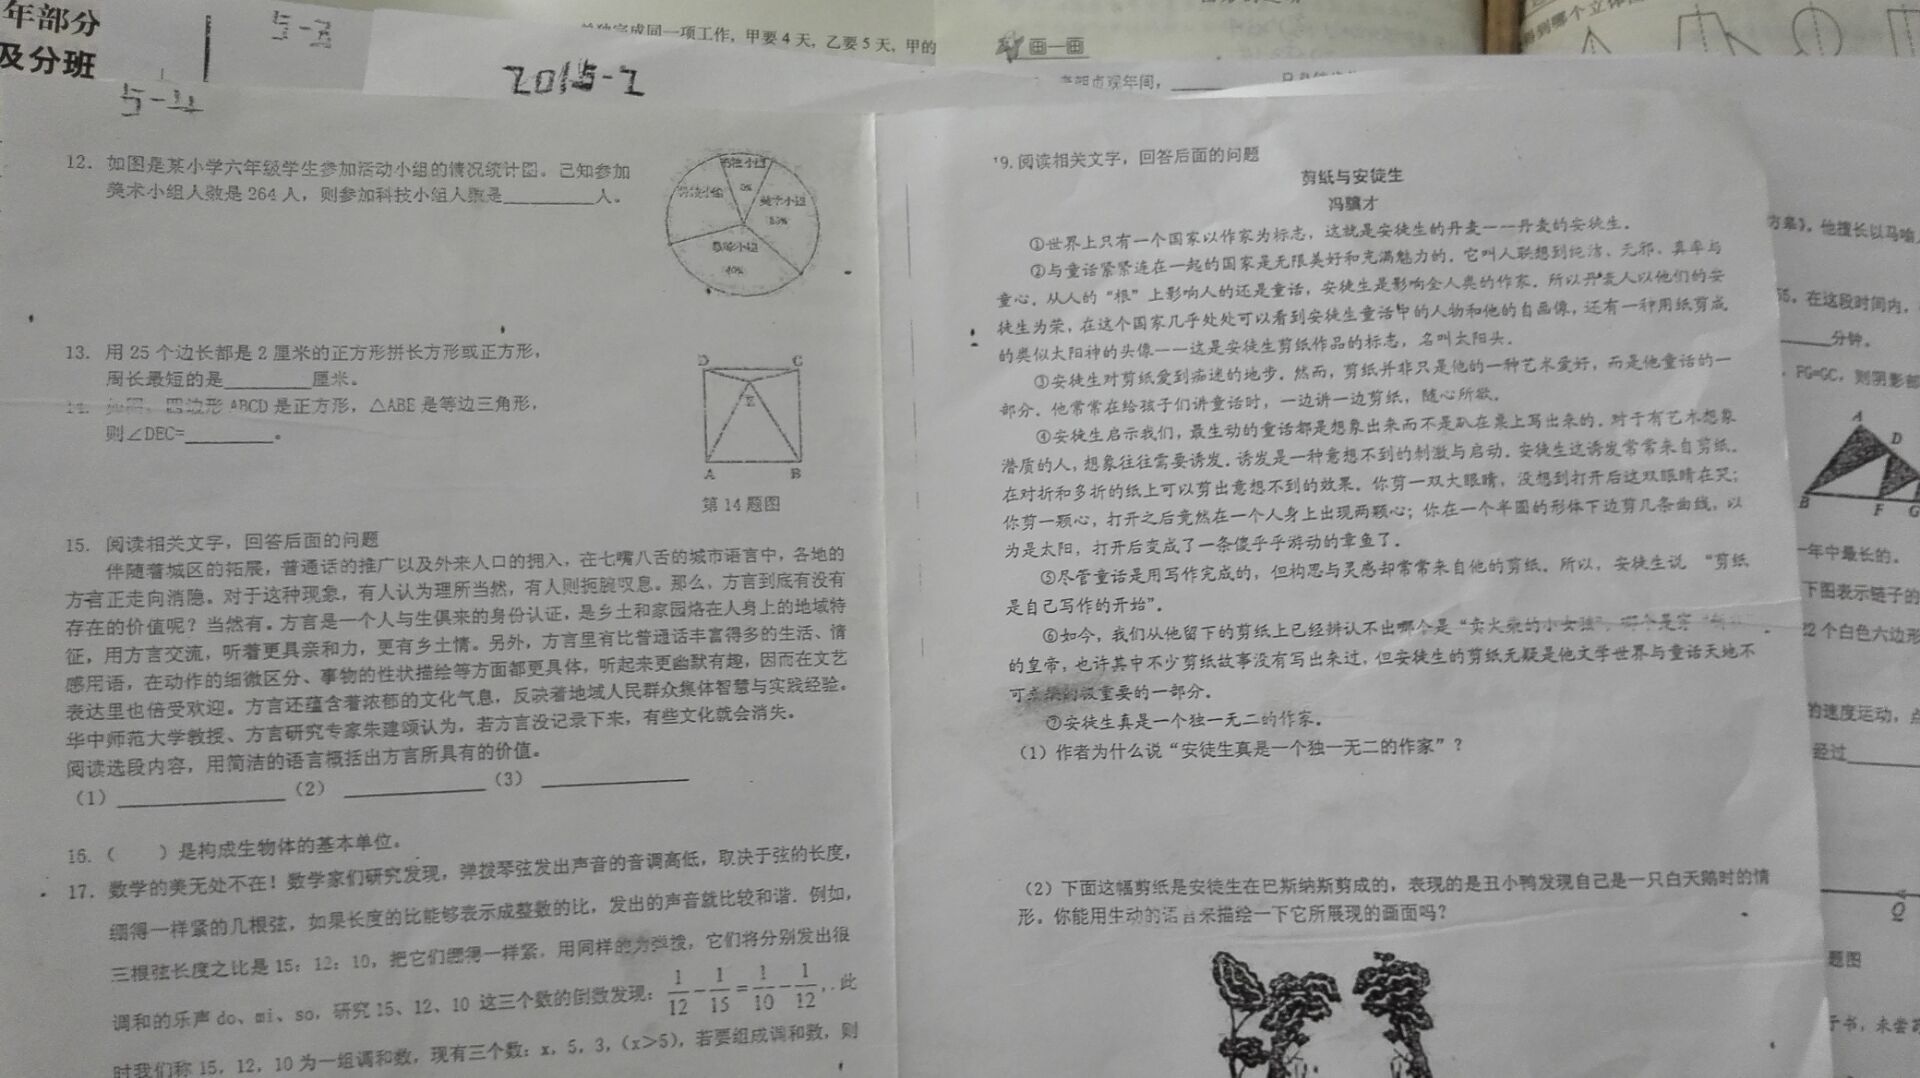 年部分
及分班
5-3
5-4
2015-2
完成同一项工作，甲要4天，乙要5天，甲的
画一画
贞观年间，
12. 如图是某小学六年级学生参加活动小组的情况统计图。己知参加
美术小组人数是264人，则参加科技小组人数是________人。
40%
13. 用25个边长都是2厘米的正方形拼长方形或正方形，
周长最短的是________厘米。
14. 如图，四边形ABCD是正方形，△ABE是等边三角形，
则∠DEC=________。
D C
E
A B
第14题图
15. 阅读相关文字，回答后面的问题
伴随着城区的拓展，普通话的推广以及外来人口的拥入，在七嘴八舌的城市语言中，各地的
方言正走向消隐。对于这种现象，有人认为理所当然，有人则扼腕叹息。那么，方言到底有没有
存在的价值呢？当然有。方言是一个人与生俱来的身份认证，是乡土和家园烙在人身上的地域特
征，用方言交流，听着更具亲和力，更有乡土情。另外，方言里有比普通话丰富得多的生活、情
感用语，在动作的细微区分、事物的性状描绘等方面都更具体，听起来更幽默有趣，因而在文艺
表达里也倍受欢迎。方言还蕴含着浓郁的文化气息，反映着地域人民群众集体智慧与实践经验。
华中师范大学教授、方言研究专家朱建颂认为，若方言没记录下来，有些文化就会消失。
阅读选段内容，用简洁的语言概括出方言所具有的价值。
（1）________（2）________（3）________
16.（ ）是构成生物体的基本单位。
17. 数学的美无处不在！数学家们研究发现，弹拨琴弦发出声音的音调高低，取决于弦的长度，
绷得一样紧的几根弦，如果长度的比能够表示成整数的比，发出的声音就比较和谐．例如，
三根弦长度之比是15：12：10，把它们绷得一样紧，用同样的力弹拨，它们将分别发出很
调和的乐声do、mi、so，研究15、12、10这三个数的倒数发现：1/12-1/15=1/10-1/12，．此
时我们称15，12，10为一组调和数，现有三个数：x，5，3，(x＞5)，若要组成调和数，则
19.阅读相关文字，回答后面的问题
剪纸与安徒生
冯骥才
①世界上只有一个国家以作家为标志，这就是安徒生的丹麦——丹麦的安徒生．
②与童话紧紧连在一起的国家是无限美好和充满魅力的．它叫人联想到纯洁、无邪、真率与
童心．从人的“根”上影响人的还是童话，安徒生是影响全人类的作家．所以丹麦人以他们的安
徒生为荣，在这个国家几乎处处可以看到安徒生童话中的人物和他的自画像，还有一种用纸剪成
的类似太阳神的头像——这是安徒生剪纸作品的标志，名叫太阳头．
③安徒生对剪纸爱到痴迷的地步．然而，剪纸并非只是他的一种艺术爱好，而是他童话的一
部分．他常常在给孩子们讲童话时，一边讲一边剪纸，随心所欲．
④安徒生启示我们，最生动的童话都是想象出来而不是趴在桌上写出来的．对于有艺术想象
潜质的人，想象往往需要诱发．诱发是一种意想不到的刺激与启动．安徒生这诱发常常来自剪纸．
在对折和多折的纸上可以剪出意想不到的效果．你剪一双大眼睛，没想到打开后这双眼睛在哭；
你剪一颗心，打开之后竟然在一个人身上出现两颗心；你在一个半圆的形体下边剪几条曲线，以
为是太阳，打开后变成了一条傻乎乎游动的章鱼了．
⑤尽管童话是用写作完成的，但构思与灵感却常常来自他的剪纸．所以，安徒生说 “剪纸
是自己写作的开始”．
⑥如今，我们从他留下的剪纸上已经辨认不出哪个是“卖火柴的小女孩”，哪个是穿
的皇帝，也许其中不少剪纸故事没有写出来过，但安徒生的剪纸无疑是他文学世界与童话天地不
可或缺的极重要的一部分．
⑦安徒生真是一个独一无二的作家．
（1）作者为什么说“安徒生真是一个独一无二的作家”？
（2）下面这幅剪纸是安徒生在巴斯纳斯剪成的，表现的是丑小鸭发现自己是一只白天鹅时的情
形。你能用生动的语言来描绘一下它所展现的画面吗？
得到哪个立体
他擅长以马喻
在这段时间内，
________分钟。
FG=GC，则阴影部
A
D
B F G
一年中最长的。
下图表示链子的
22个白色六边形
的速度运动，点
经过________
Q
题图